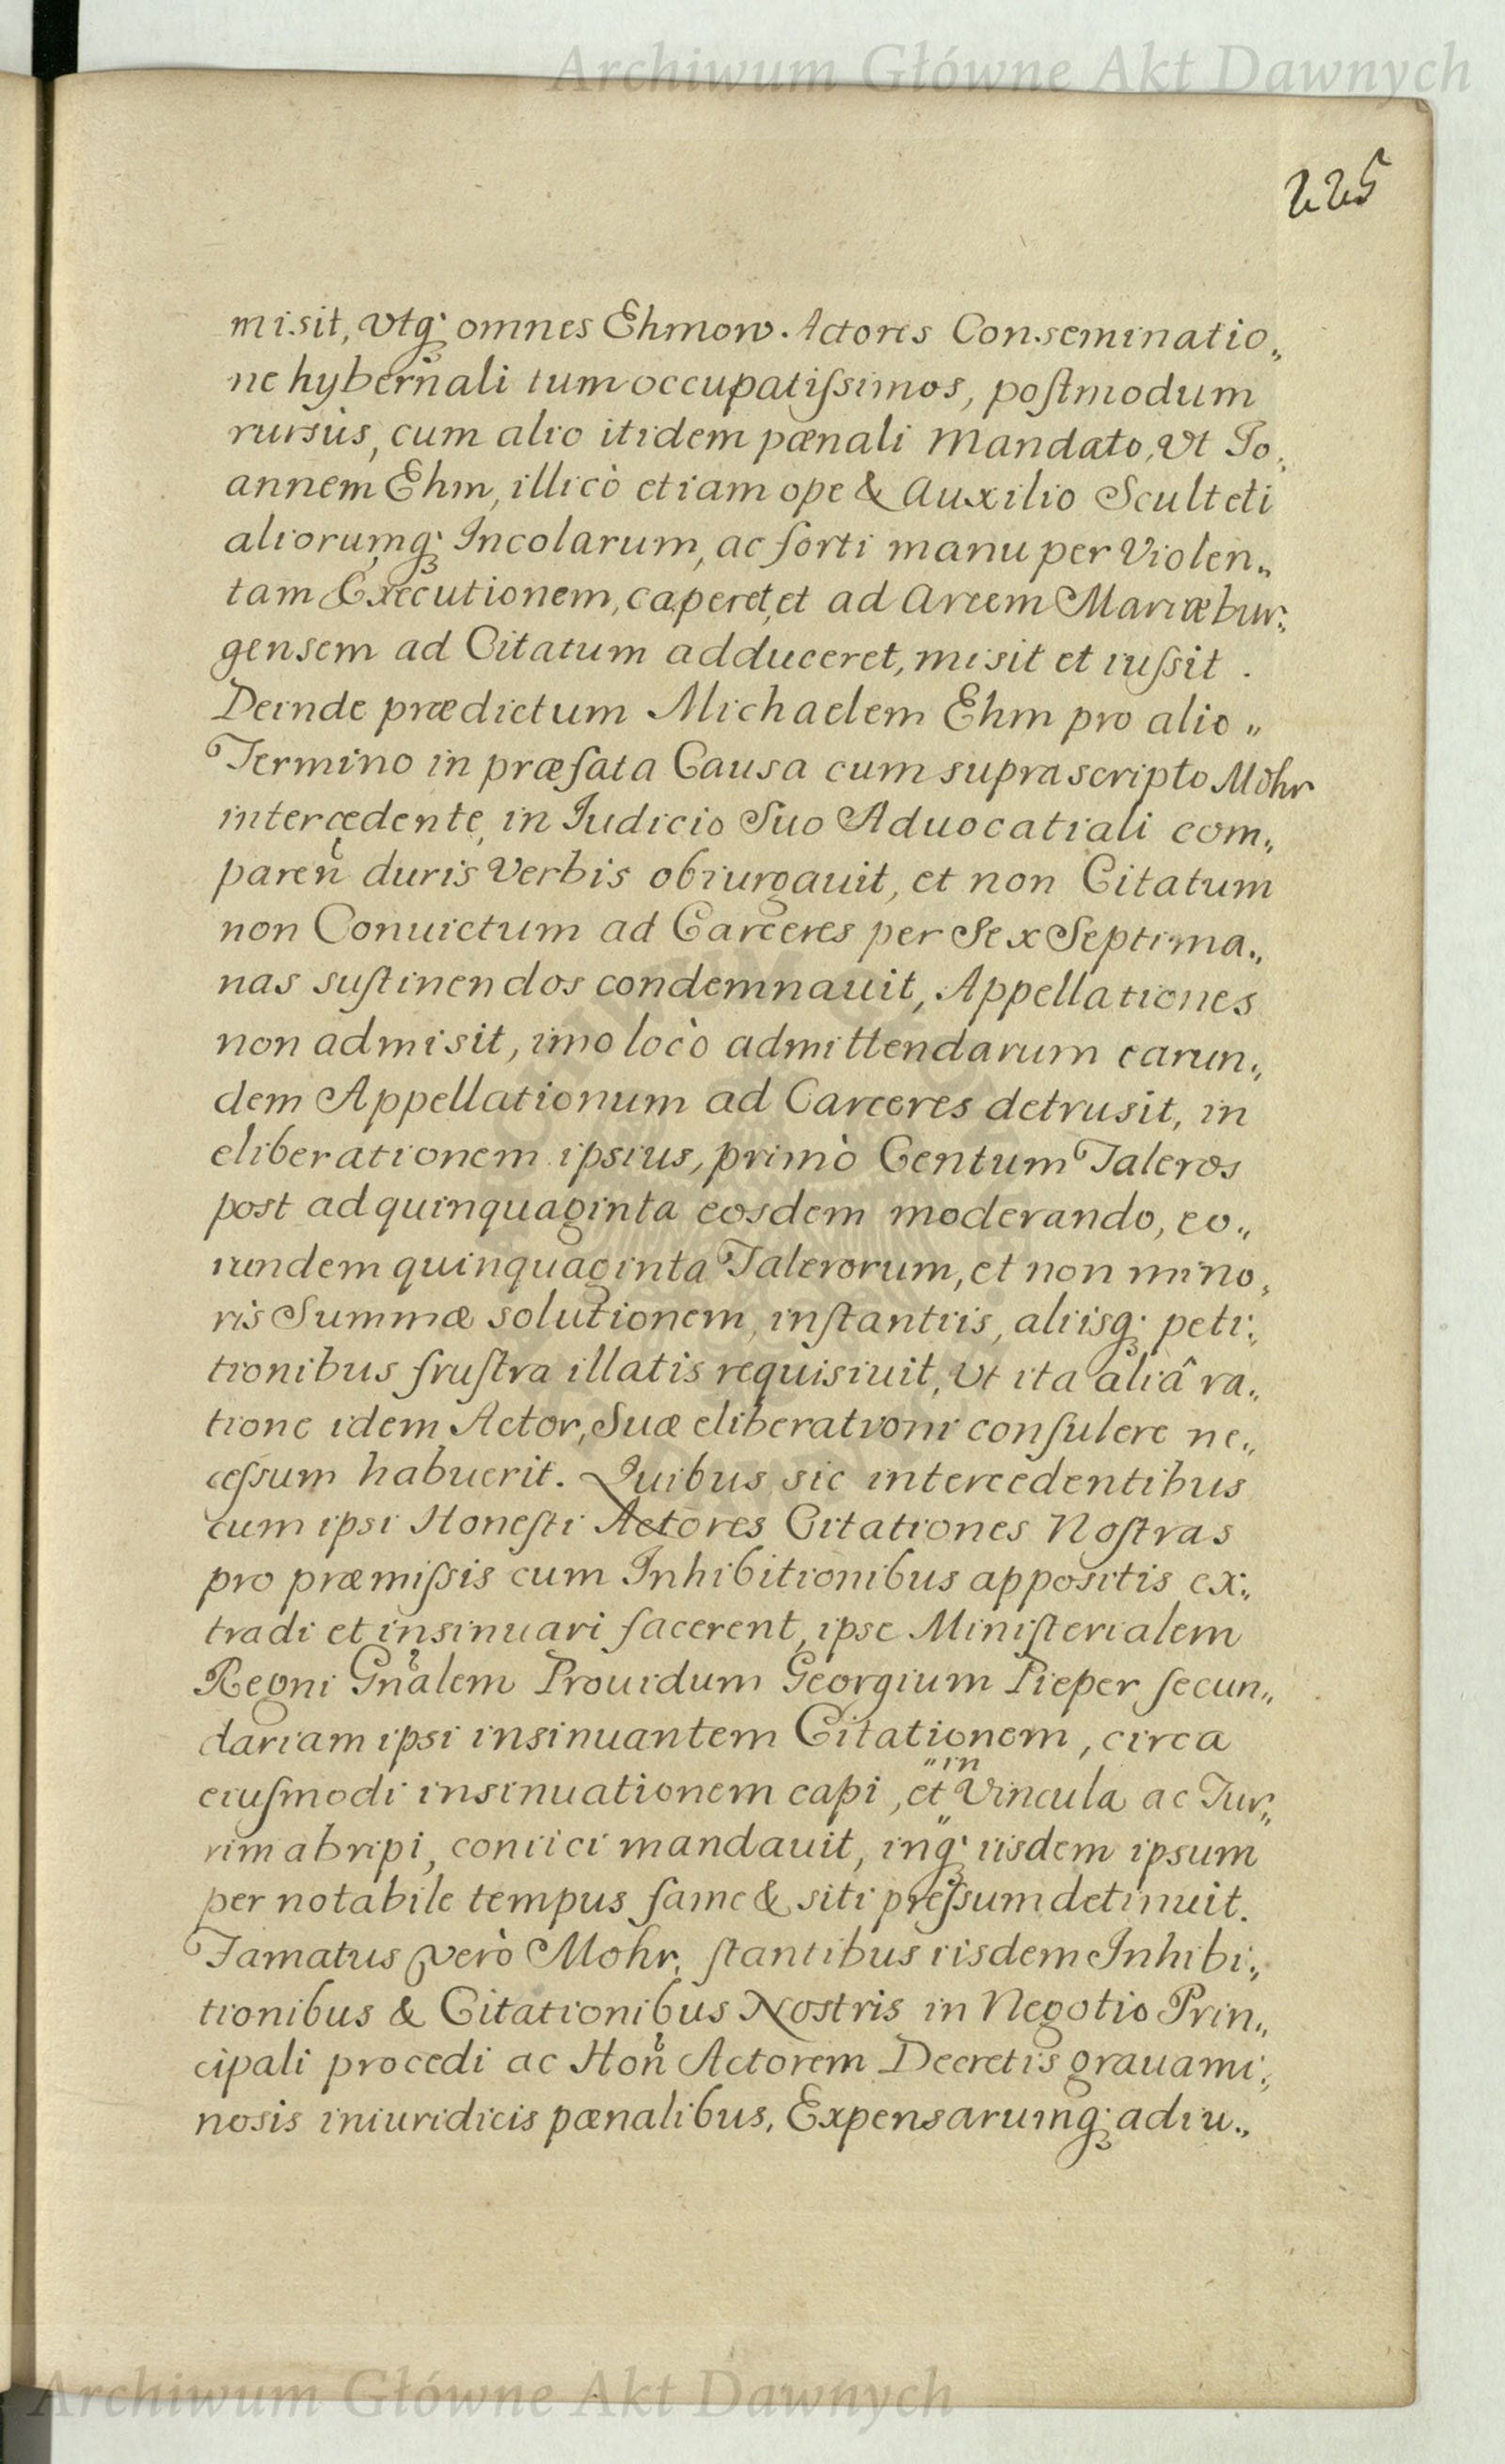 Archiwum Główne Akt Dawnych
225
misit, Vtq; omnes Ehmow. Actores Conseminatio„
ne hybernali tum occupatiſsimos, poſtmodum
rursùs, cum alio itidem pænali Mandato, Vt Jo„
annem Ehm, illicò etiam ope & Auxilio Sculteti
aliorumq; Incolarum, ac forti manu per Violen„
tam Executionem, caperet, et ad Arcem Mariæbur„
gensem ad Citatum adduceret, misit et iuſsit.
Deinde prædictum Michaelem Ehm pro alio„
Termino in præfata Causa cum suprascripto Mohr
intercedente, in Iudicio Suo Aduocatiali com„
pareñ duris Verbis obiurgauit, et non Citatum
non Conuictum ad Carceres per Sex Septima„
nas suſtinendos condemnauit, Appellationes
non admisit, imo locò admittendarum earun„
dem Appellationum ad Carceres detrusit, in
eliberationem ipsius, primò Centum Taleros
post ad quinquaginta eosdem moderando, eo„
rundem quinquaginta Talerorum, et non mino„
ris Summæ solutionem, inſtantiis, aliisq; peti„
tionibus fruſtra illatis requisiuit, Vt ita aliâ ra„
tione idem Actor, Suæ eliberationi conſulere ne„
ceſsum habuerit. Quibus sic intercedentibus
cum ipsi Honeſti Actores Citationes Noſtras
pro præmiſsis cum Inhibitionibus appositis ex„
tradi et insinuari facerent, ipse Miniſterialem
Regni Gñalem Prouidum Georgium Pieper secun„
dariam ipsi insinuantem Citationem, circa
eiuſmodi insinuationem capi, et „in Vincula ac Tur„
rim abripi, coniici mandauit, inq; iisdem ipsum
per notabile tempus fame & siti preſsum detinuit.
Famatus verò Mohr, ſtantibus iisdem Inhibi„
tionibus & Citationibus Nostris in Negotio Prin„
cipali procedi ac Hoñ Actorem Decretis grauami„
nosis iniuridicis pænalibus, Expensarumq; adiu„
Archiwum Główne Akt Dawnych